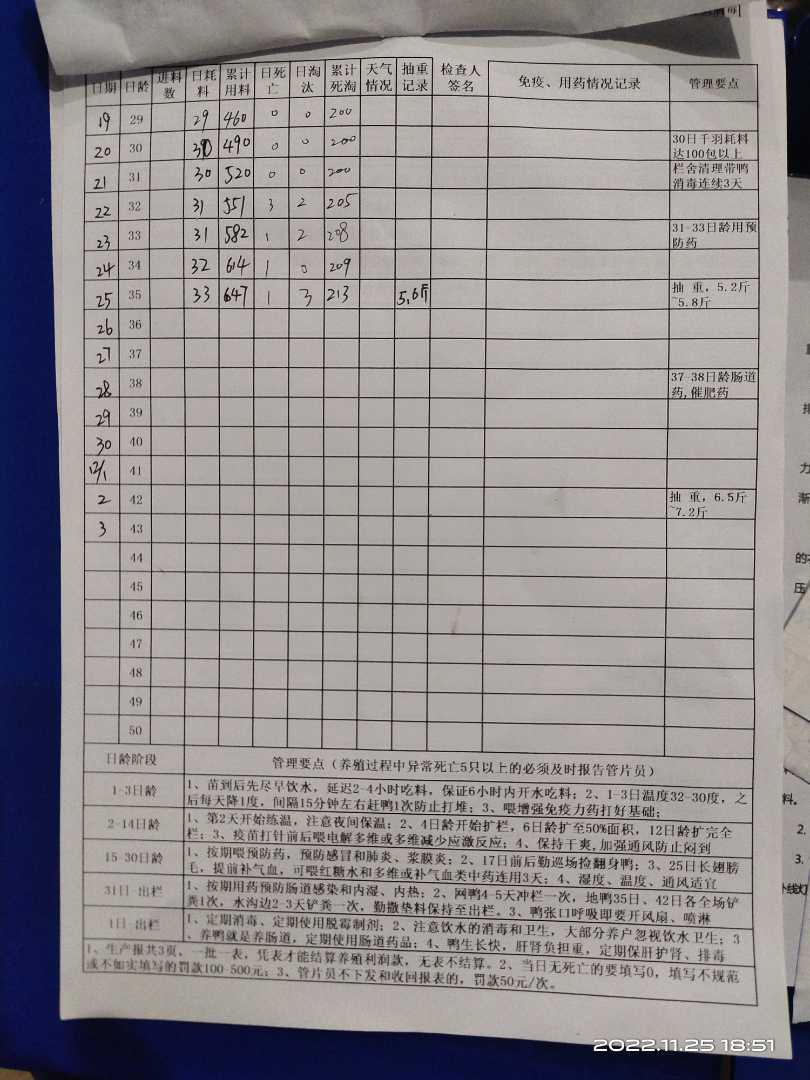 日期 日龄 进料数 日耗料 累计用料 日死亡 日淘汰 累计死淘 天气情况 抽重记录 检查人签名 免疫、用药情况记录 管理要点
19 29 29 460 0 0 200
20 30 30 490 0 0 200 30日千羽耗料达100包以上
21 31 30 520 0 0 200 栏舍清理带鸭消毒连续3天
22 32 31 551 3 2 205
23 33 31 582 1 2 208 31-33日龄用预防药
24 34 32 614 1 0 209
25 35 33 647 1 3 213 5.6斤 抽 重，5.2斤~5.8斤
26 36
27 37
28 38 37-38日龄肠道药,催肥药
29 39
30 40
12/1 41
2 42 抽 重，6.5斤~7.2斤
3 43
44
45
46
47
48
49
50
日龄阶段 管理要点（养殖过程中异常死亡5只以上的必须及时报告管片员）
1-3日龄 1、苗到后先尽早饮水，延迟2-4小时吃料，保证6小时内开水吃料；2、1-3日温度32-30度，之
后每天降1度，间隔15分钟左右赶鸭1次防止打堆；3、喂增强免疫力药打好基础；
2-14日龄 1、第2天开始练温，注意夜间保温；2、4日龄开始扩栏，6日龄扩至50%面积，12日龄扩完全
栏；3、疫苗打针前后喂电解多维或多维减少应激反应；4、保持干爽,加强通风防止闷到
15-30日龄 1、按期喂预防药，预防感冒和肺炎、浆膜炎；2、17日前后勤巡场捡翻身鸭；3、25日长翅膀
毛，提前补气血，可喂红糖水和多维或补气血类中药连用3天；4、湿度、温度、通风适宜
31日-出栏 1、按期用药预防肠道感染和内湿、内热；2、网鸭4-5天冲栏一次，地鸭35日、42日各全场铲
粪1次，水沟边2-3天铲粪一次，勤撒垫料保持至出栏。3、鸭张口呼吸即要开风扇、喷淋
1日-出栏 1、定期消毒、定期使用脱霉制剂；2、注意饮水的消毒和卫生，大部分养户忽视饮水卫生；3
、养鸭就是养肠道，定期使用肠道药品；4、鸭生长快，肝肾负担重，定期保肝护肾、排毒
1、生产报共3页、一批一表，凭表才能结算养殖利润款，无表不结算。2、当日无死亡的要填写0，填写不规范
或不如实填写的罚款100-500元；3、管片员不下发和收回报表的，罚款50元/次。
力
渐
的
压
料。
2.
3.
外线灯
2022.11.25 18:51